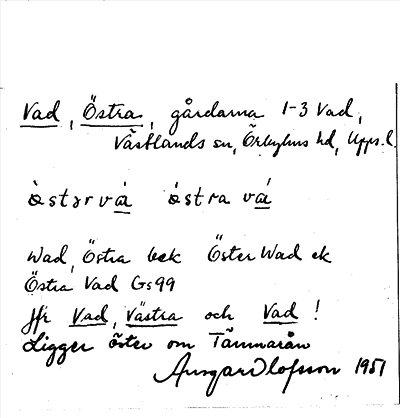 Vad, Östra, gårdarna 1-3 Vad,
Västlands sn, Örbyhus hd, Upps. l.
òstərvá̱ ´østra vá̱
Wad, Östra bek Öster Wad ek
Östra Vad Gs 99
Jfr Vad, Västra och Vad!
Ligger öster om Tämnarån
Ansgar Olofsson 1951